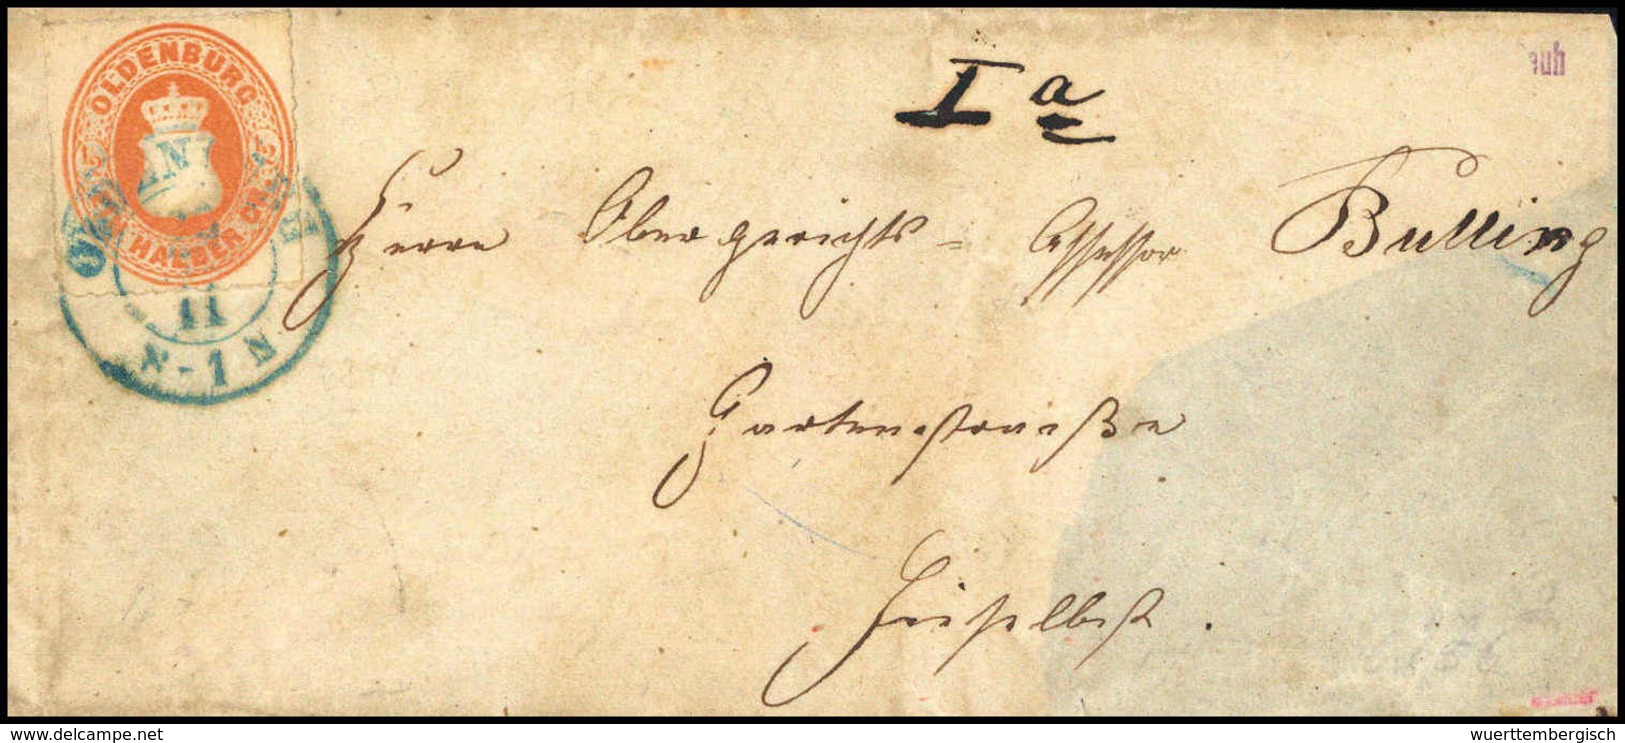 OLDENBURG
EIN HALBER GR.
11
N-1N
Ia
uh
Herrn Obergerichts = Assessor Bulling
Gartenstraße
Hieselbst.
delcampe.net
wuerttembergisch